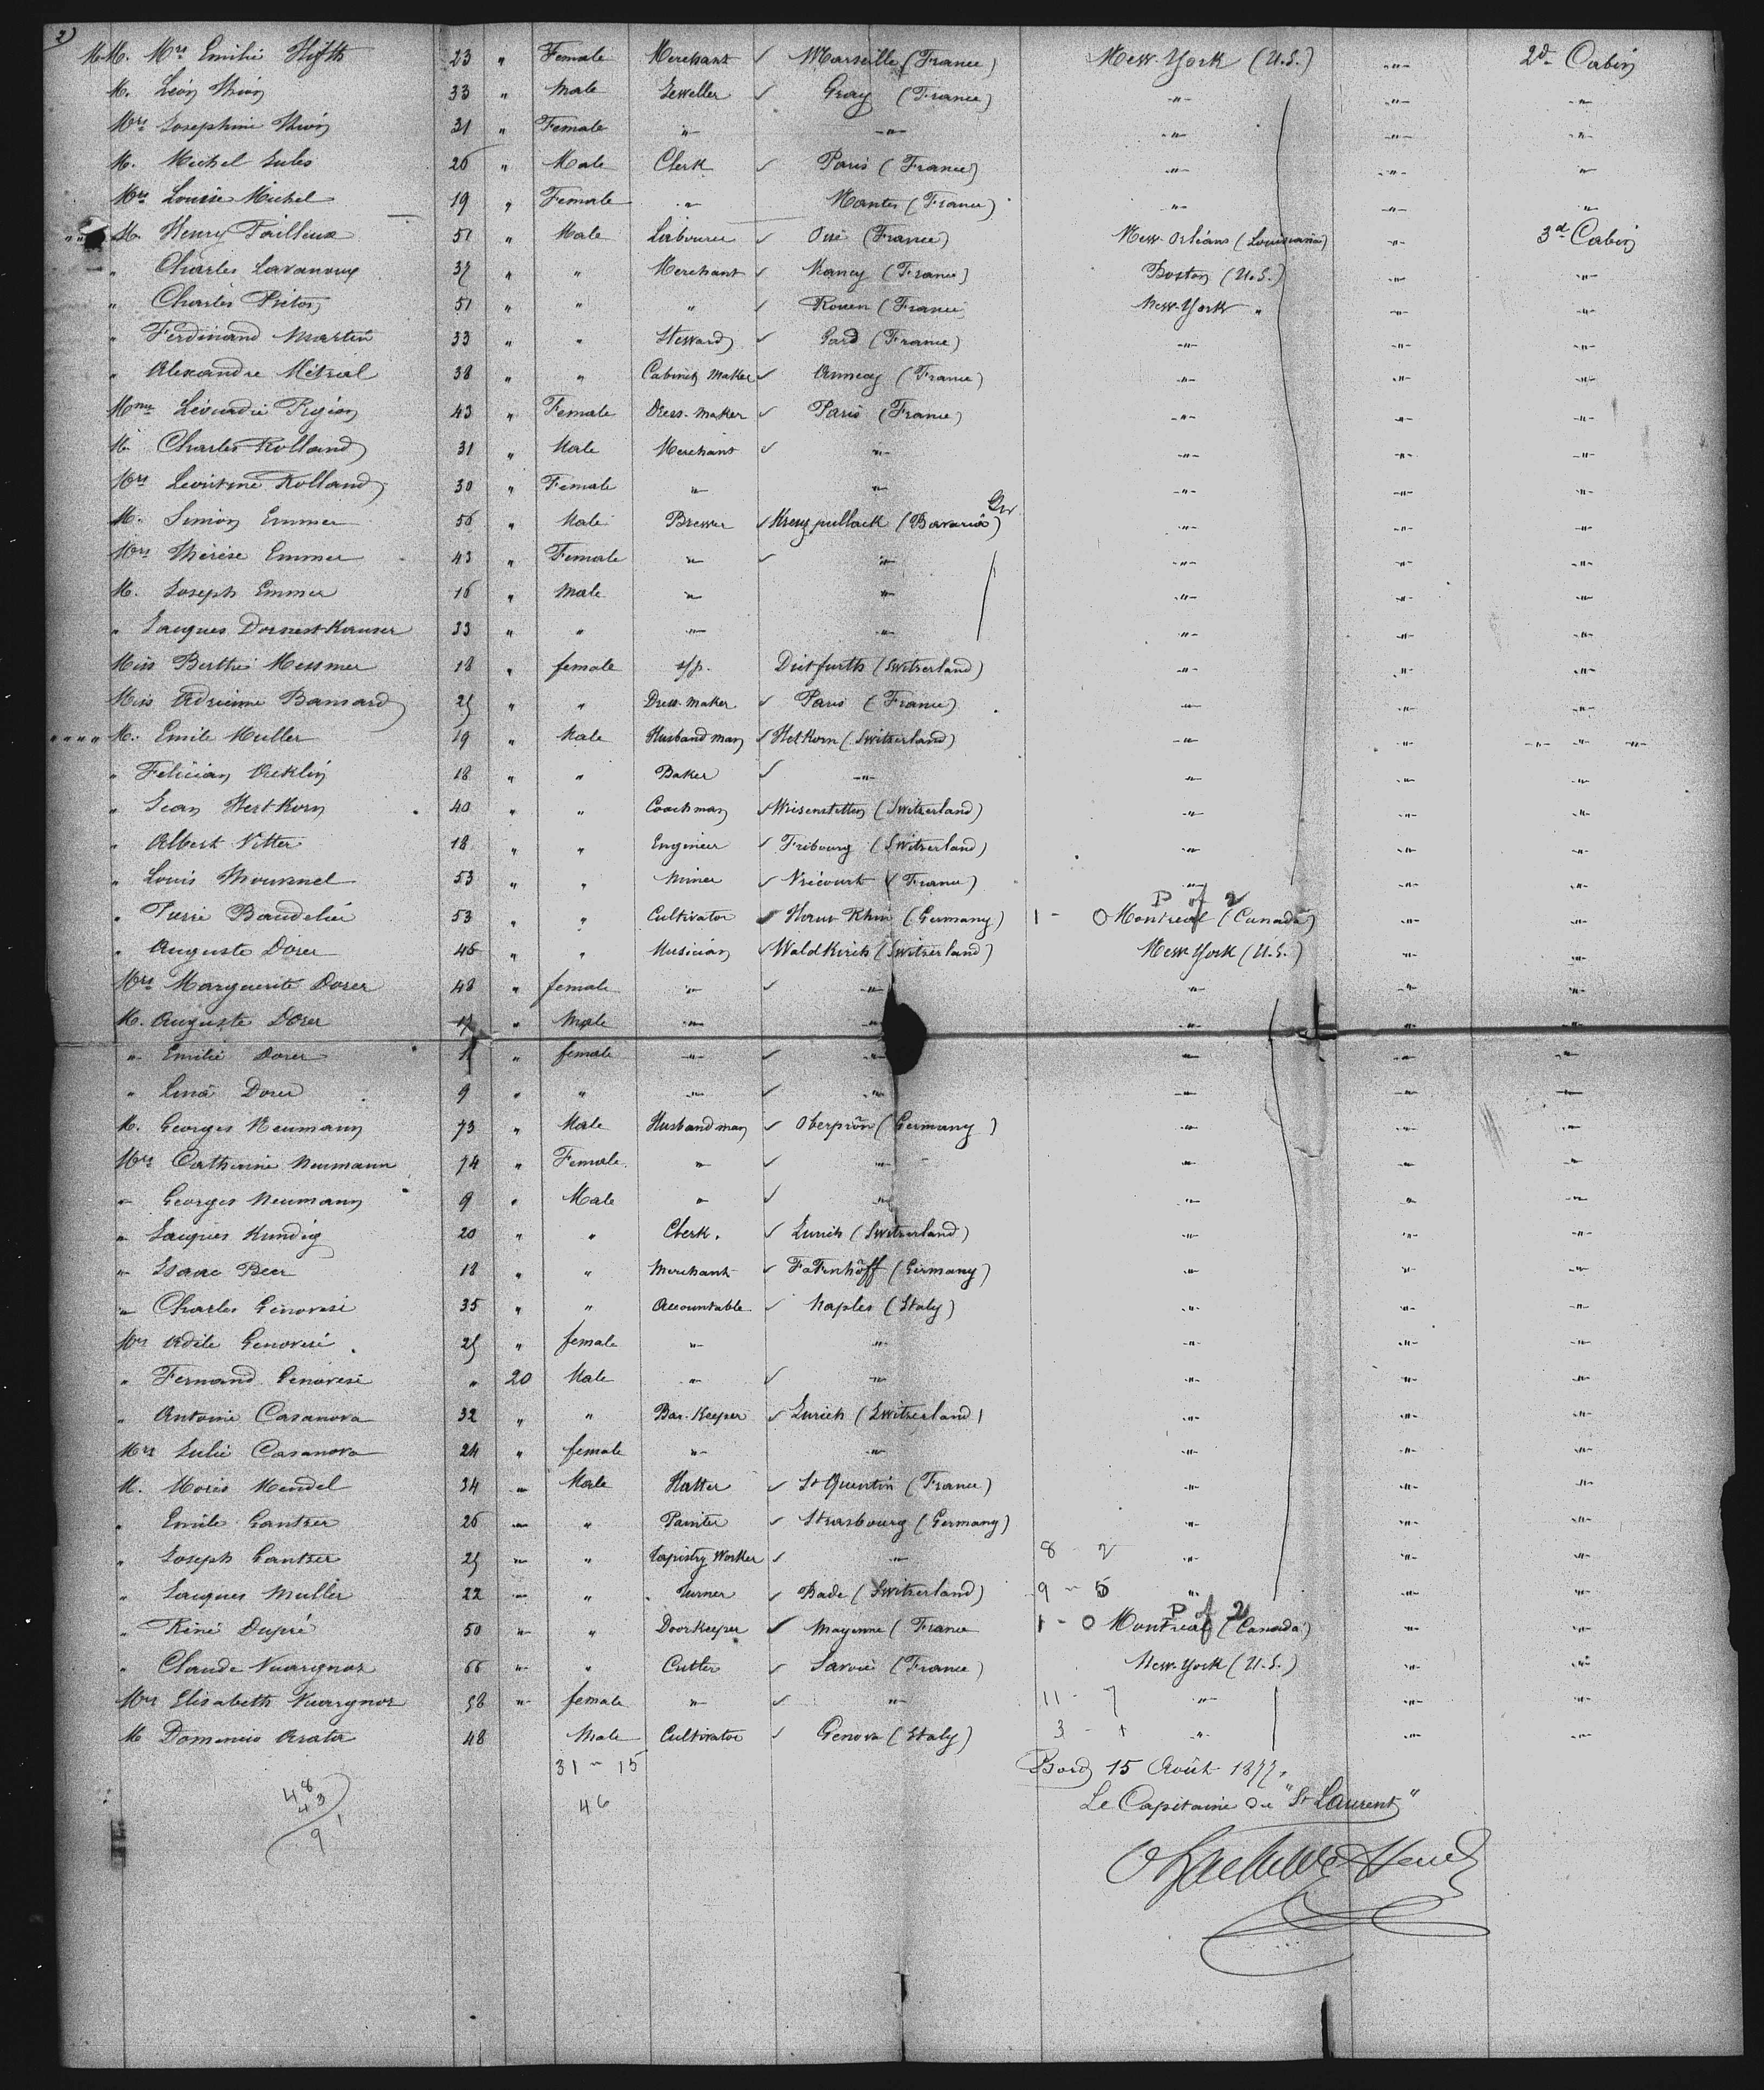 2)
M.M. Mrs Emilie 23 " Female Merchant ✓ Marseille (France) New-York (U.S.) -"- 2d Cabin
M. Léon Thion 33 " Male Jeweller ✓ Gray (France) -"- -"- -"-
Mrs Josephine Thion 31 " Female -"- -"- -"- -"- -"-
M. Michel Jules 26 " Male Clerk ✓ Paris (France) -"- -"- -"-
Mrs Louise Michel 19 " Female -"- Nantes (France) -"- -"- -"-
M. Henry Tailleux 51 " Male Labourer ✓ (France) New-Orléans (Louisiana) -"- 3d Cabin
" Charles Lavanoux 37 " " Merchant ✓ Nancy (France) Boston (U.S.) -"- -"-
" Charles 51 " " " ✓ Rouen (France) New-York " -"- -"-
" Ferdinand Martin 33 " " Steward ✓ Gard (France) -"- -"- -"-
" Alexandre Métral 38 " " Cabinet Maker ✓ Annecy (France) -"- -"- -"-
Mme 43 " Female Dress-maker ✓ Paris (France) -"- -"- -"-
M. Charles Rolland 31 " Male Merchant ✓ -"- -"- -"- -"-
Mrs Léontine Rolland 30 " Female -"- -"- -"- -"- -"-
M. Simon Emmer 56 " Male Brewer ✓ (Bavaria) -"- -"- -"-
Mrs Thérèse Emmer 43 " Female -"- ✓ -"- -"- -"- -"-
M. Joseph Emmer 16 " Male -"- -"- -"- -"- -"-
" Jacques 33 " " -"- -"- -"- -"- -"-
Miss Berthe Messmer 18 " female Dietfurth (Switzerland) -"- -"- -"-
Miss Adrienne Bansard 25 " " Dress-maker ✓ Paris (France) -"- -"- -"-
" " " " M. Emile Muller 19 " Male Husbandman ✓ (Switzerland) -"- -"- -"- -"- -"-
" Félicien Oeklin 18 " " Baker ✓ -"- -"- -"- -"-
" Jean 40 " " Coachman ✓ (Switzerland) -"- -"- -"-
" Albert Vitter 18 " " Engineer ✓ Fribourg (Switzerland) -"- -"- -"-
" Louis 53 " " Miner ✓ Vricourt (France) -"- -"- -"-
" Pierre Baudelier 53 " " Cultivator ✓ (Germany) 1 - O Montreal (Canada) -"- -"-
" Auguste Dorer 46 " " Musician ✓ Waldkirch (Switzerland) New York (U.S.) -"- -"-
Mrs Marguerite Dorer 48 " female -"- ✓ -"- -"- -"- -"-
M. Auguste Dorer " Male -"- -"- -"- -"- -"-
" Emilie Dorer " female -"- ✓ -"- -"- -"- -"-
" Lina Dorer 9 " " -"- ✓ -"- -"- -"- -"-
M. Georges Neumann 73 " Male Husbandman ✓ (Germany) -"- -"- -"-
Mrs Catherine Neumann 74 " Female -"- ✓ -"- -"- -"- -"-
" Georges Neumann 9 " Male -"- ✓ -"- -"- -"- -"-
" Jacques Kundig 20 " " Clerk. ✓ Zurich (Switzerland) -"- -"- -"-
" Isaac Beer 18 " " Merchant ✓ (Germany) -"- -"- -"-
" Charles Genovesi 35 " " Accountable ✓ Naples (Italy) -"- -"- -"-
Mrs Adèle Genovesi 25 " female -"- -"- -"- -"- -"-
" Fernand Genovesi " 20 Male -"- ✓ -"- -"- -"- -"-
" Antoine Casanova 32 " " Bar-Keeper ✓ Zurich (Switzerland) -"- -"- -"-
Mrs Julie Casanova 24 " female -"- -"- -"- -"- -"-
M. Moïse Mendel 34 " Male Hatter ✓ St Quentin (France) -"- -"- -"-
" Emile Gantzer 26 " " Painter ✓ Strasbourg (Germany) -"- -"- -"-
" Joseph Gantzer 25 " " Tapistry Worker ✓ -"- 8 - 2 -"- -"- -"-
" Jacques Muller 22 " " Turner ✓ Bade (Switzerland) 9 - 5 -"- -"- -"-
" Réné Dupré 50 " " Doorkeeper ✓ Mayenne (France 1 - O Montreal (Canada) -"- -"-
" Claude Vuargnoz 66 " " Cutler ✓ Savoie (France) New-York (U.S.) -"- -"-
Mrs Elisabeth Vuargnoz 58 " female -"- ✓ -"- 11 - 7 -"- -"- -"-
M Domenico 48 Male Cultivator ✓ Genova (Italy) 3 - + -"- -"- -"-
31 - 15
46
48
43
91
Bord 15 Août 1877.
Le Capitaine du "St Laurent"